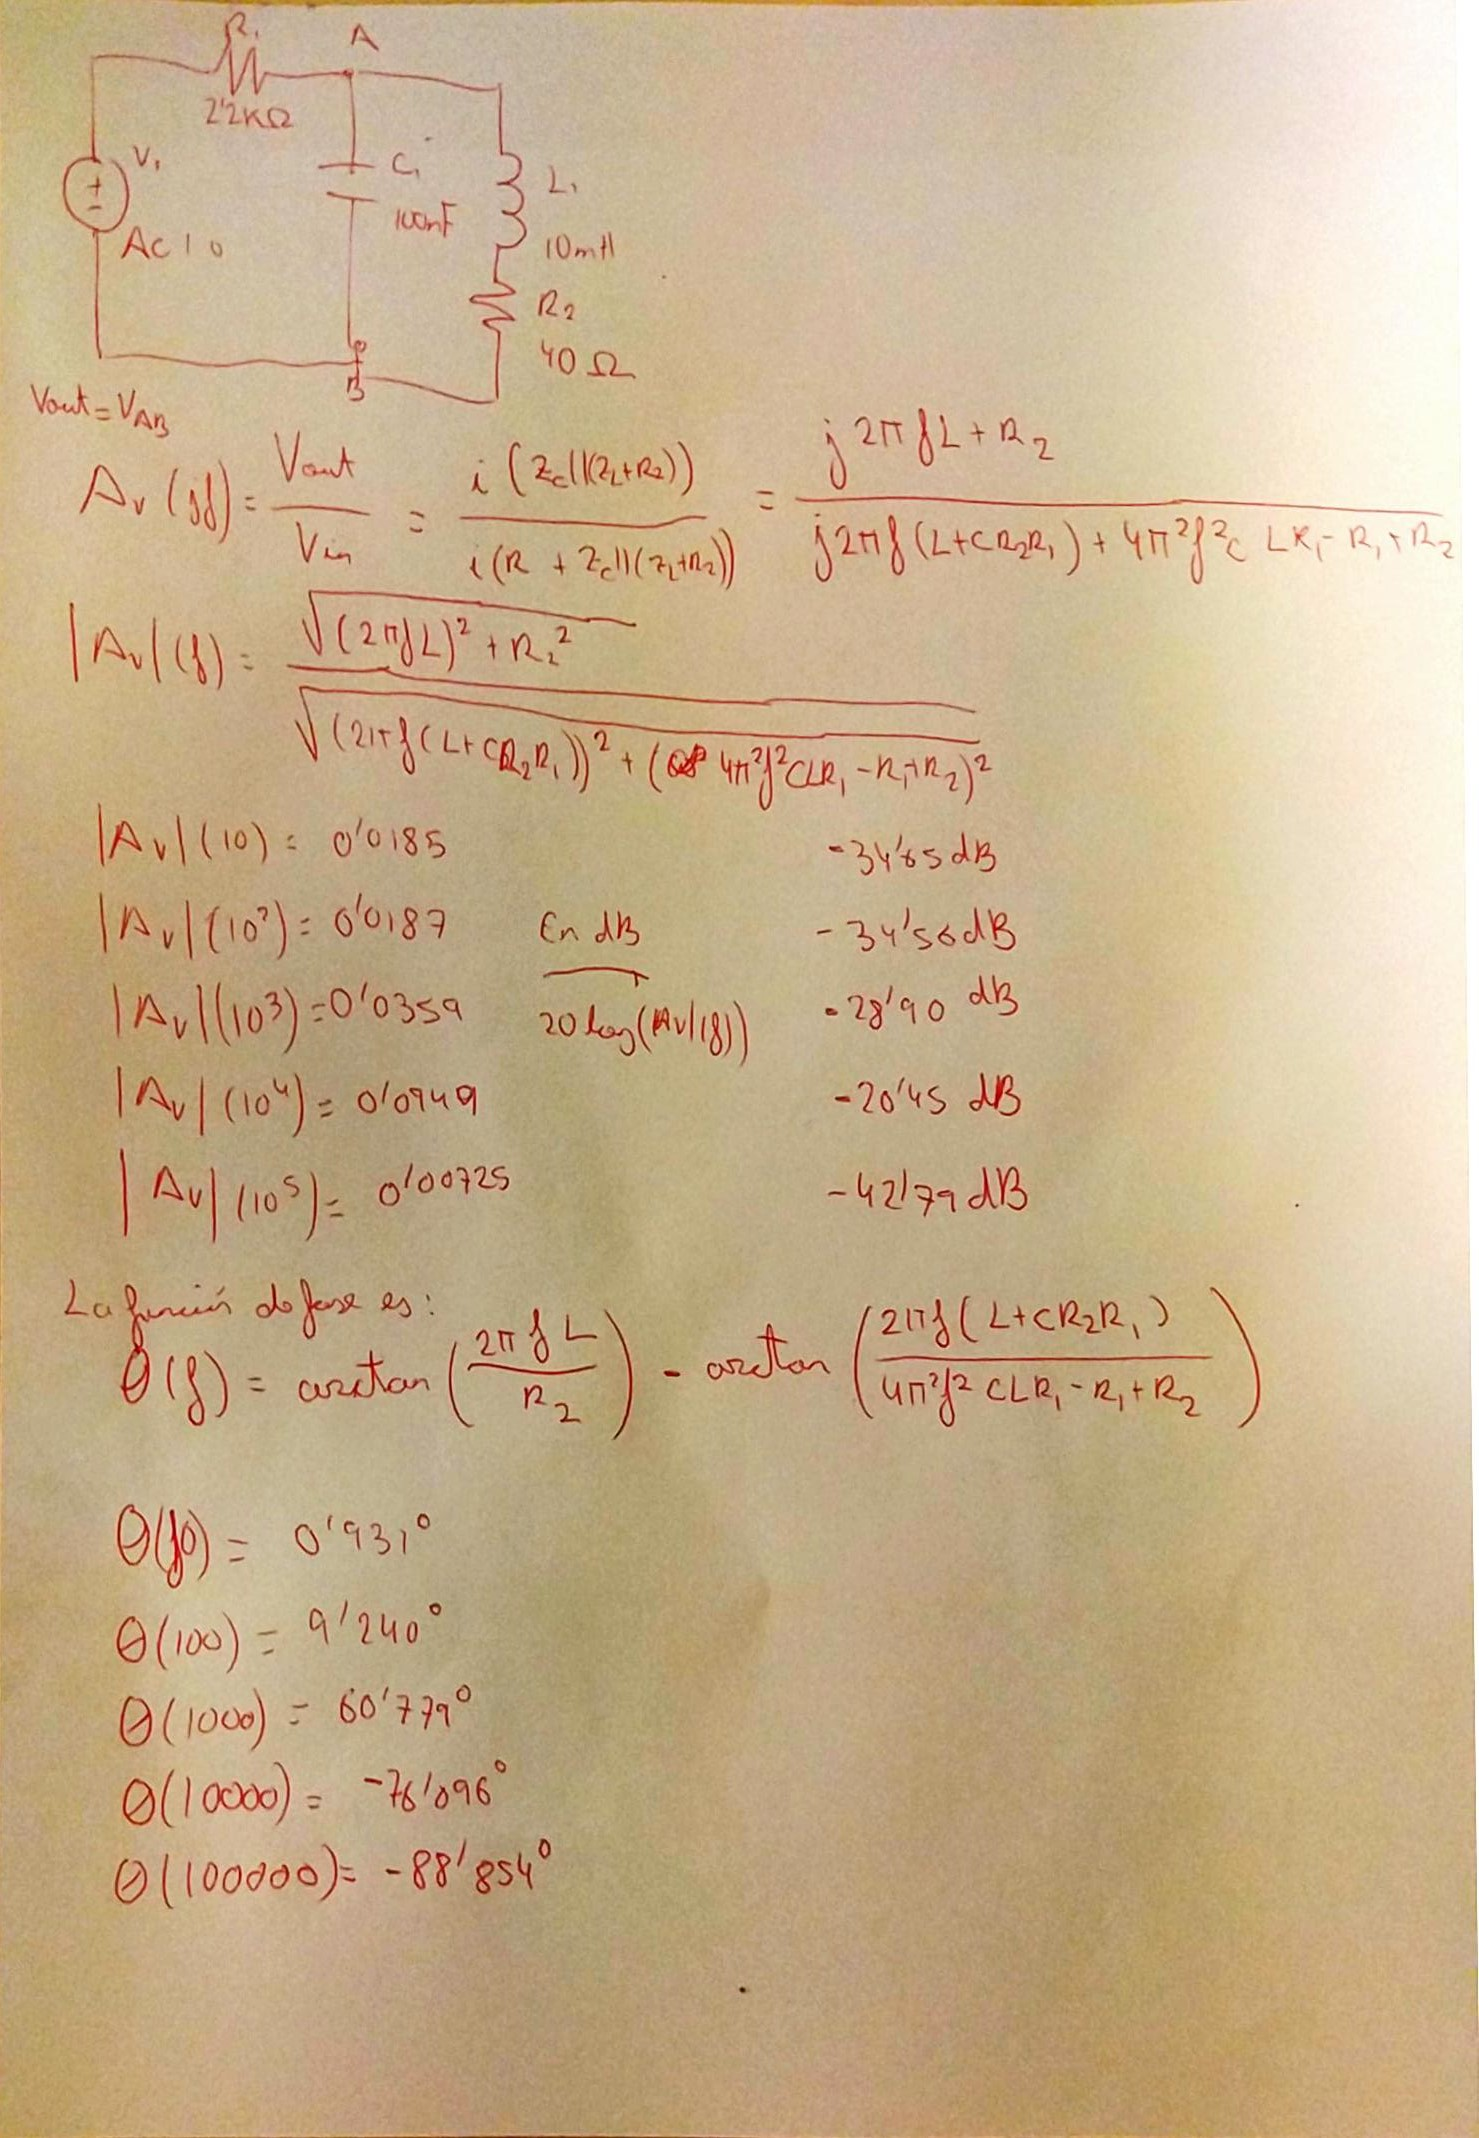 R₁ A
2'2KΩ
V₁ C₁ L₁
+
-
AC 1 0 100nF 10mH
R₂
40 Ω
B
Vout = V_AB
Av (jf) = Vout / Vin = i (Zc||(ZL+R2)) / i (R + Zc||(ZL+R2)) = j2πfL + R₂ / j2πf (L+CR₂R₁) + 4π²f²C LR₁ - R₁ + R₂
|Av|(f) = √((2πfL)² + R₂²) / √((2πf(L+CR₂R₁))² + (4π²f²CLR₁ - R₁+R₂)²)
|Av|(10) = 0'0185 -34'65 dB
|Av|(10²) = 0'0187 En dB -34'56 dB
|Av|(10³) = 0'0359 20 log(|Av|(f)) -28'90 dB
|Av|(10⁴) = 0'0949 -20'45 dB
|Av|(10⁵) = 0'00725 -42'79 dB
La función de fase es:
θ(f) = arctan (2πfL / R₂) - arctan (2πf(L+CR₂R₁) / 4π²f² CLR₁ - R₁ + R₂)
θ(10) = 0'931°
θ(100) = 9'240°
θ(1000) = 60'779°
θ(10000) = -76'096°
θ(100000) = -88'854°